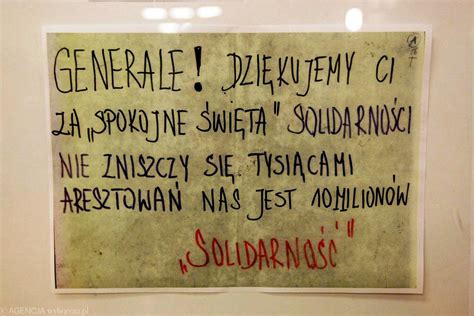 GENERALE! DZIĘKUJEMY CI
ZA „SPOKOJNE ŚWIĘTA" SOLIDARNOŚCI
NIE ZNISZCZY SIĘ TYSIĄCAMI
ARESZTOWAŃ NAS JEST 10 MILIONÓW
„SOLIDARNOŚĆ"
AGENCJA wyborcza.pl